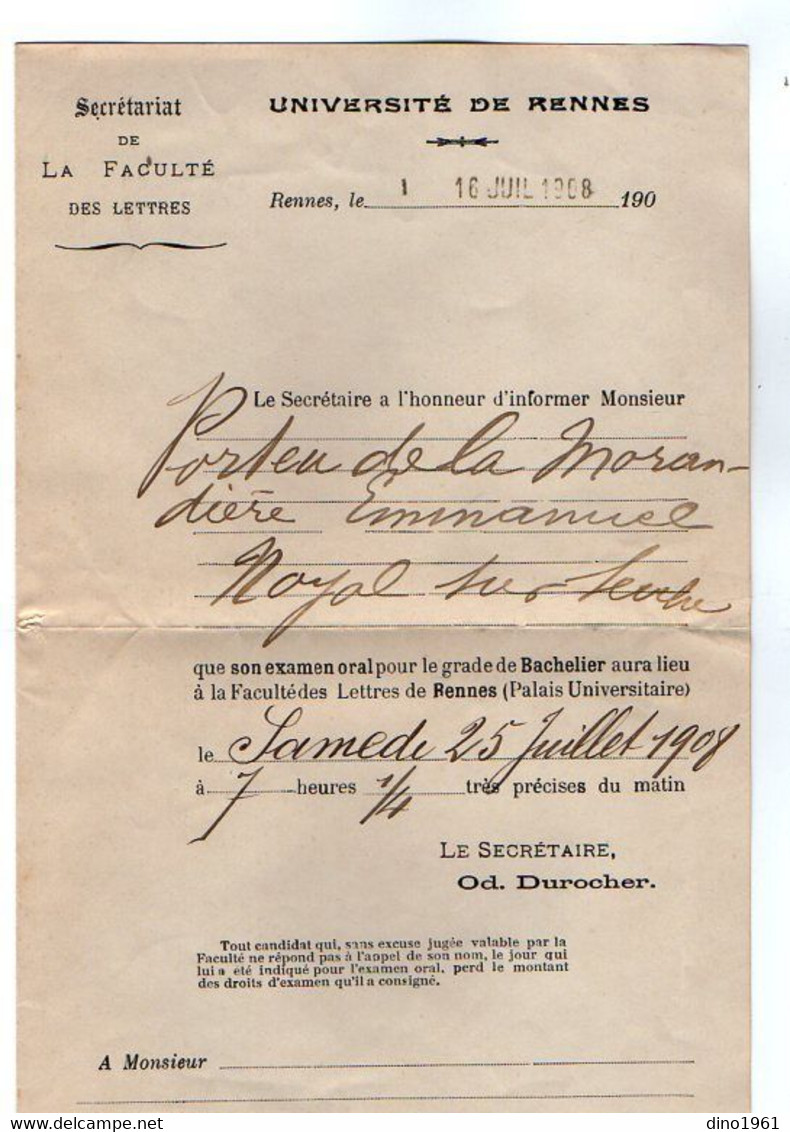 Secrétariat
DE
LA FACULTÉ
DES LETTRES
UNIVERSITÉ DE RENNES
Rennes, le 1 16 JUIL 1908 190
Le Secrétaire a l'honneur d'informer Monsieur
Porteu de la Moran-
dière Emmanuel
Noyal sur
que son examen oral pour le grade de Bachelier aura lieu
à la Faculté des Lettres de Rennes (Palais Universitaire)
le Samedi 25 Juillet 1908
à 7 heures 1/4 très précises du matin
LE SECRÉTAIRE,
Od. Durocher.
Tout candidat qui, sans excuse jugée valable par la
Faculté ne répond pas à l'appel de son nom, le jour qui
lui a été indiqué pour l'examen oral, perd le montant
des droits d'examen qu'il a consigné.
A Monsieur
dino1961